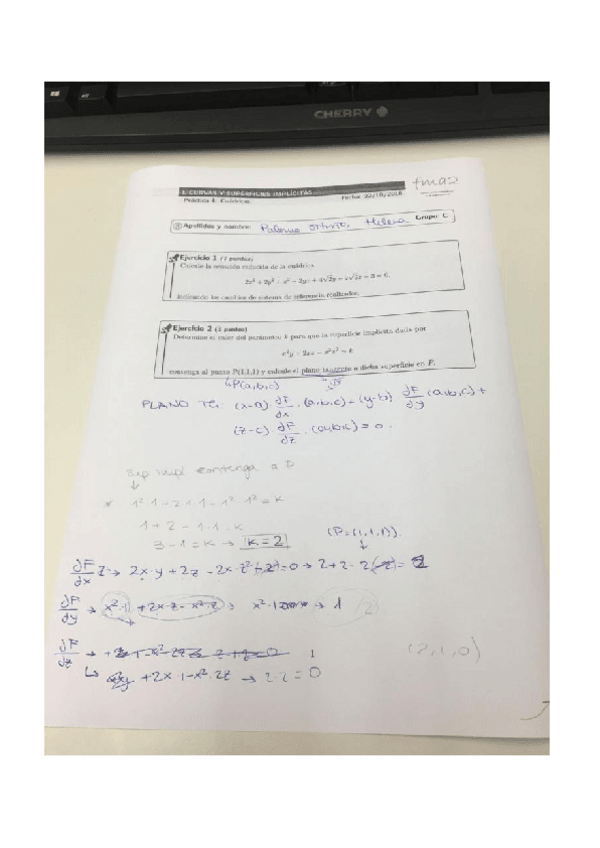 CHERRY
fma2
I. CURVAS Y SUPERFICIES IMPLÍCITAS
Práctica 4: Cuádricas. Fecha:
Apellidos y nombre: Palomo Helena Grupo: C
Ejercicio 1 (7 puntos)
Calcule la ecuación reducida de la cuádrica
indicando los cambios de sistema de referencia realizados.
Ejercicio 2 (3 puntos)
Determine el valor del parámetro k para que la superficie implícita dada por
x²y + 2xz − x²z² = k
contenga al punto P(1,1,1) y calcule el plano tangente a dicha superficie en P.
P(a,b,c)
PLANO TG: (x-a)· dF/dx ·(a,b,c)+(y-b) dF/dy (a,b,c)+
(z-c)· dF/dz ·(a,b,c)=0.
Sup impl contenga a P
1²·1+2·1·1-1²·1²=k
1+2-1·1=k
3-1=k → k=2 (P=(1,1,1)).
dF/dx → 2x·y + 2z - 2x·z² =0 → 2+2-2 = 2
dF/dy → x²·1 + 2x·z - x²·z x²·1 → 1
dF/dz → 1 (2,1,0)
↳ +2x·1-x²·2z → 2-2=0